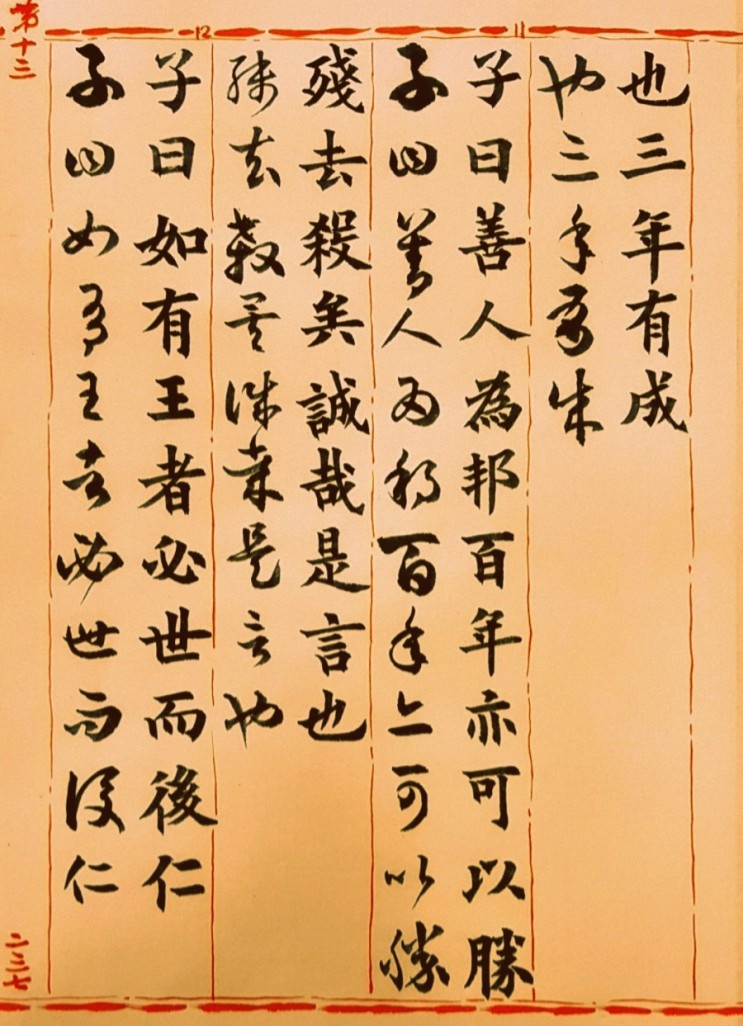 也三年有成
也三年有成
11
子曰善人為邦百年亦可以勝
子曰善人為邦百年亦可以勝
殘去殺矣誠哉是言也
殘去殺矣誠哉是言也
12
子曰如有王者必世而後仁
子曰如有王者必世而後仁
第十三
二三七